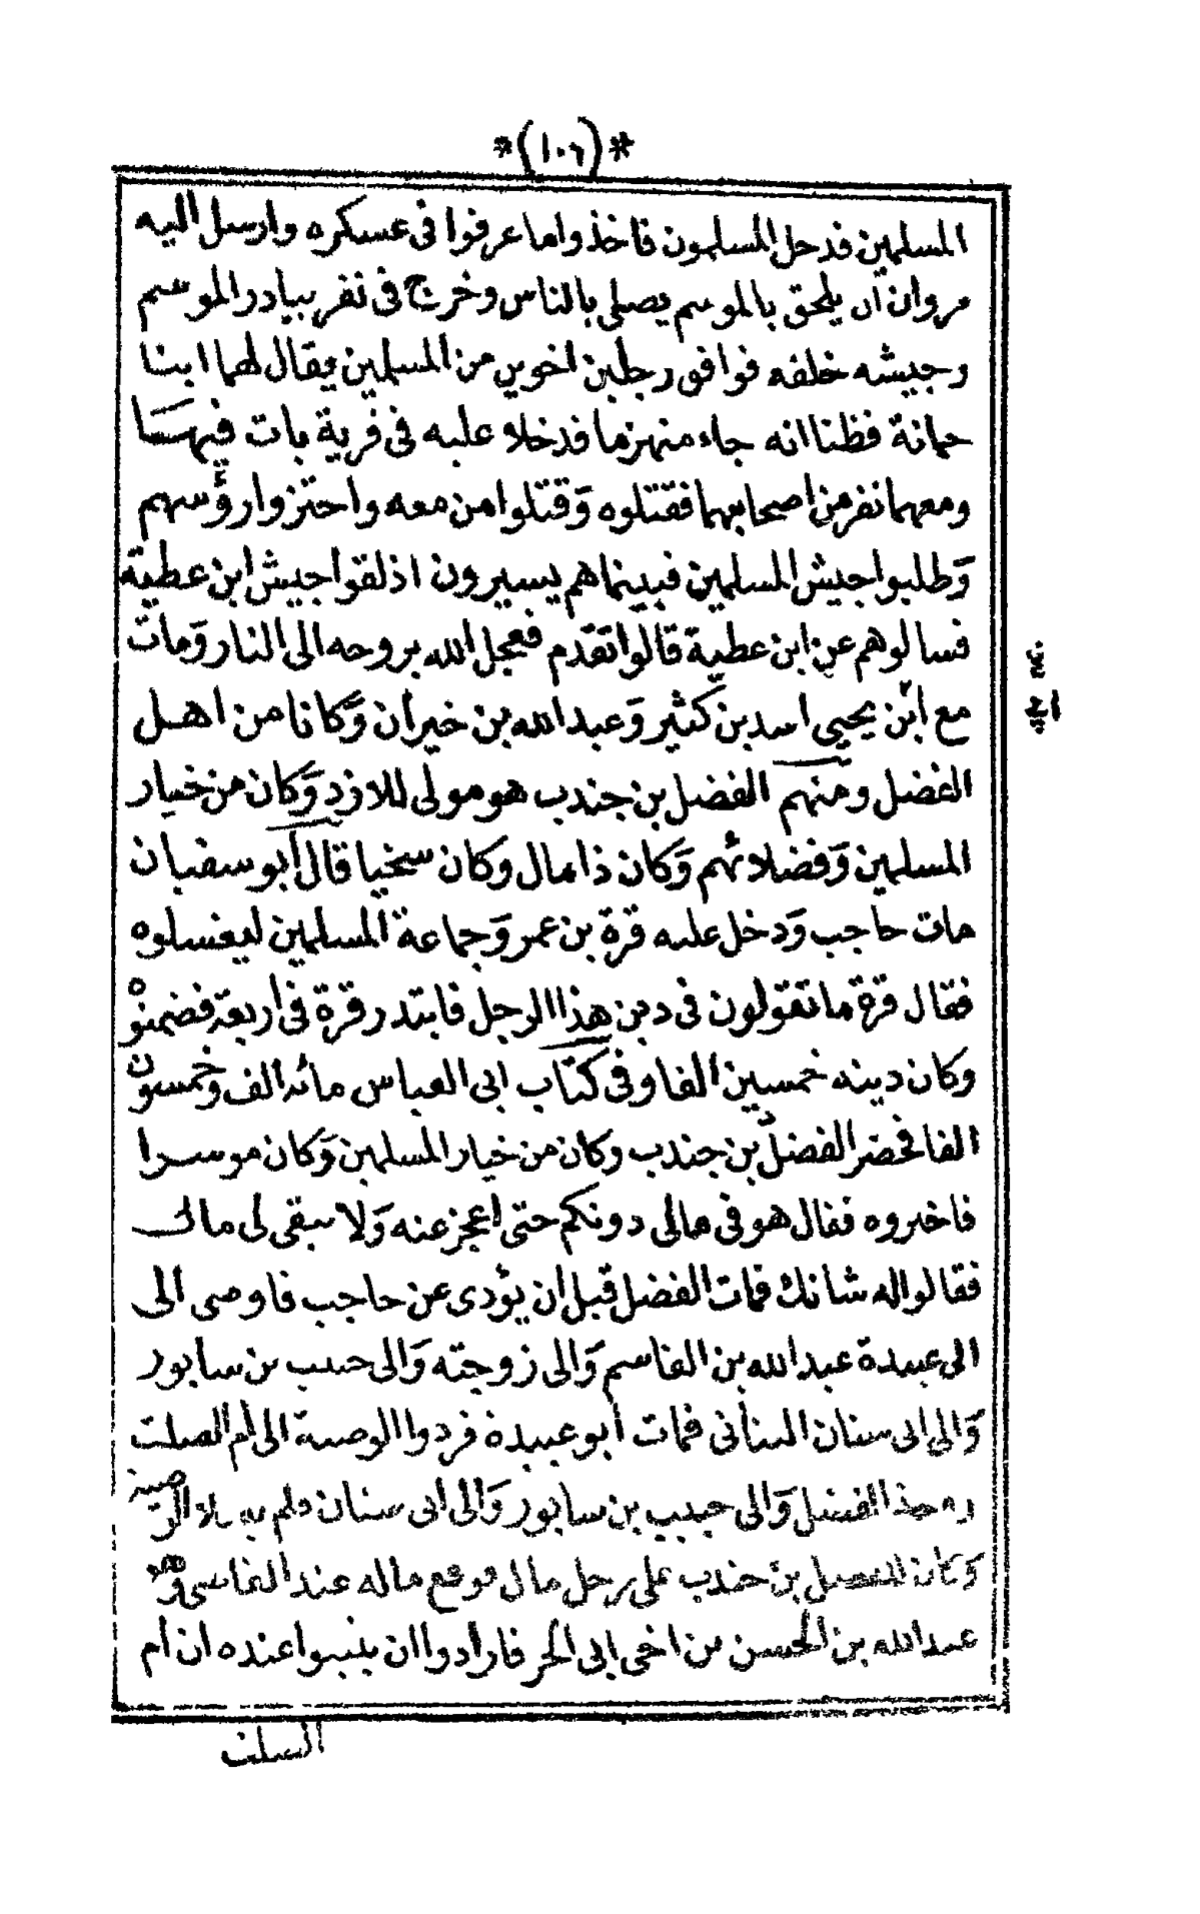 *(١٠٦)*
المسلمين فدخل المسلمون فاخذوا ما عرفوا فى عسكره وارسل اليه
مروان أن يلحق بالموسم يصلى بالناس وخرج فى نفر يبادر الموسم
وجيشه خلفه فوافق رجلين اخوين من المسلمين يقال لهما ابنا
حمانة فظنا انه جاء منهزما فدخلا عليه فى قرية بات فيهـا
ومعهما نفر من اصحابهما فقتلوه وَقتلوا من معه واحتزوا رؤسهم
وَطلبوا جيش المسلمين فبينما هم يسيرون اذ لقوا جيش ابن عطية
فسالوهم عن ابن عطية قالوا تقدم فعجل الله بروحه الى النار وَمات
مع ابن يحيى اسد بن كثير وَعبد الله بن خيران وَكانا من اهـل
الفضل ومنهم الفضل بن جندب هو مولى للازد وَكان من خيار
المسلمين وَفضلائهم وَكان ذا مال وكان سخيا قال أبو سفيان
مات حاجب وَدخل عليه قرة بن عمر وَجماعة المسلمين ليغسلوه
فقال قرة ما تقولون فى دين هذا الرجل فابتدر قرة فى أربعة فضمنوْ
وكان دينه خمسين الفا وفى كتاب ابى العباس مائه الف وخمسون
الفا فحضر الفضل بن جندب وكان من خيار المسلمين وَكان موسـرا
فاخبروه فقال هو فى مالى دونكم حتى اعجز عنه وَلا يبقى لى مال
فقالوا له شانك فمات الفضل قبل ان يؤدى عن حاجب فاوصى الى
الى عبيدة عبد الله بن القاسم وَالى زوجته وَالى حبيب بن سابور
وَالى ابى سنان البنانى فمات أبو عبيدة فردوا الوصية الى أم الصلت
هذا الفضل وَالى حبيب بن سابور وَالى ابى سنان فلم
وَكان للفضل بن جندب على رجل مال فوقع ماله عند القاسى وهو
عبد الله بن الحسن بن اخى ابى الحر فارادوا ان يثبتوا عنده ان ام
السلت